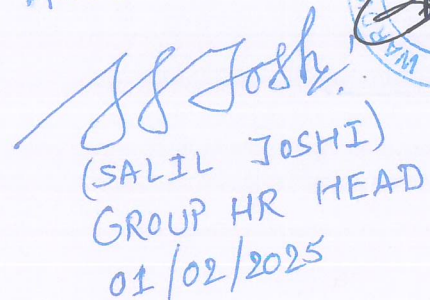 SS Joshi
(SALIL JOSHI)
GROUP HR HEAD
01/02/2025
WARD